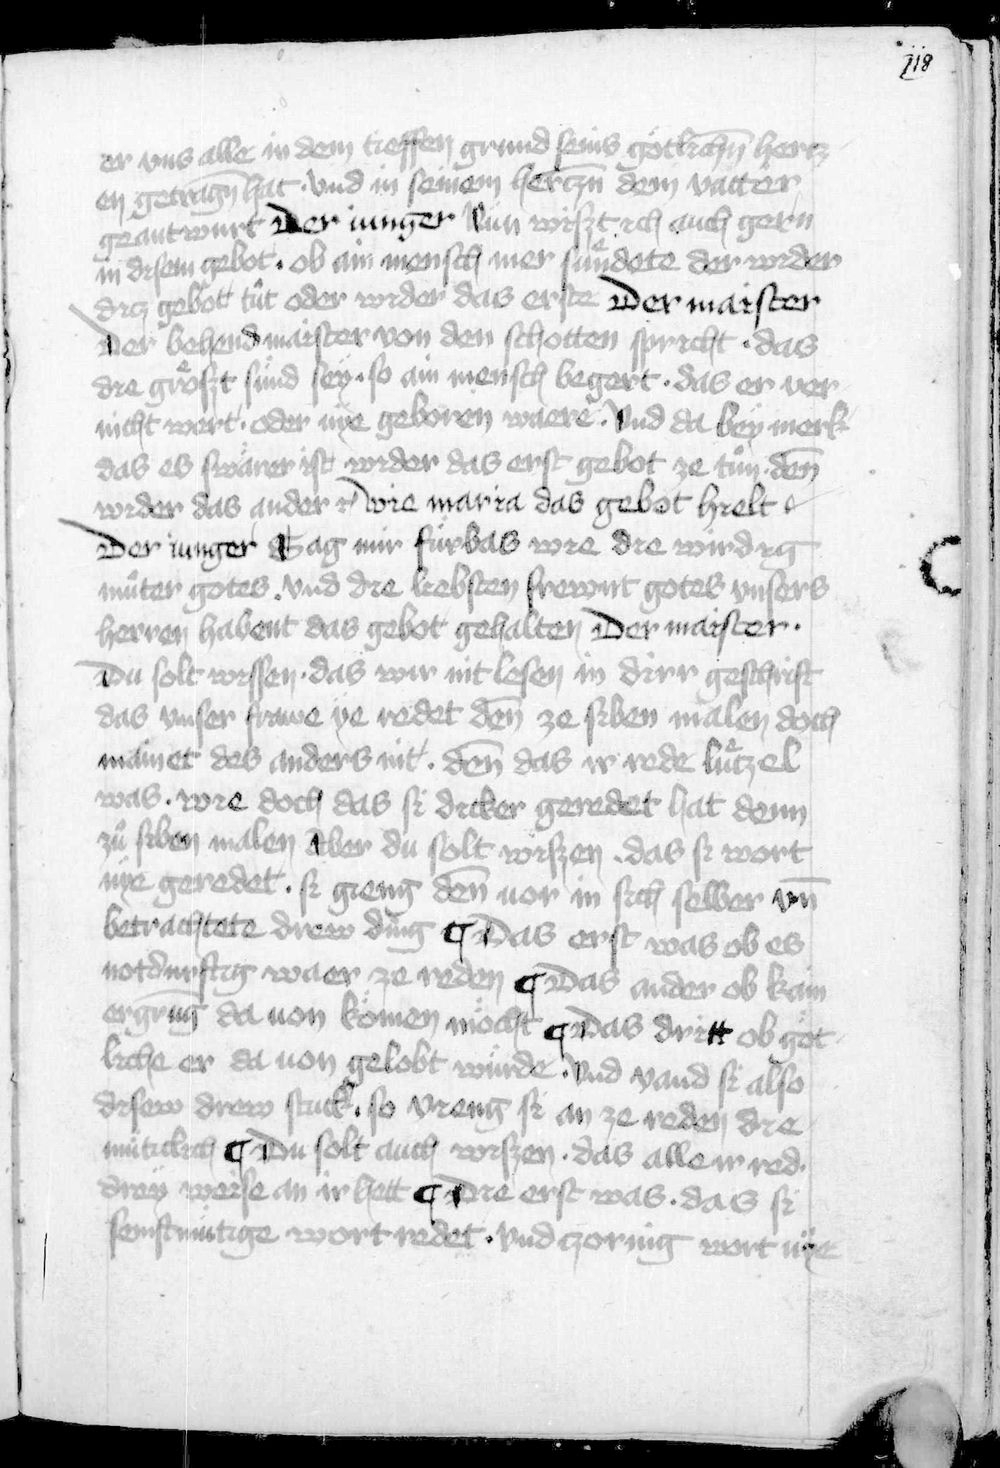 118
er vns alle in dem tieffen grund seins götlichen̄ hertz
en getragn̄ hat · vnd in seinem hertzn̄ dem vatter
geantwurt Der iunger Nun wiszt ich auch gern
in disem gebot · ob ain mensch mer sündete der wider
dicz gebott tůt oder wider das erste Der maister
Der behend maister von den schotten spricht · das
die gröszt sünd sey · so ain mensch begert · das er ver
nicht wart · oder nye geboren waere · Vnd da bey merk
das es swärer ist wider das erst gebot ze tůn · den̄
wider das ander Wie maria das gebot hielt
Der iunger Sag mir fürbas wie die wirdig
můter gotes · vnd die liebsten frewnt gotes vnsers
herren habent das gebot gehalten Der maister ·
Du solt wissen · das wir nit lesen in dirr geschrift
das vnser frawe ye redet den̄ ze siben malen doch
mainet des anders nit · den̄ das ir rede lützel
was · wie doch das si dicker geredet hat denn
zů siben malen Aber du solt wiszen · das si wort
nye geredet · si gieng den̄ vor in sich selber vn̄
betrachtete drew ding ¶ Das erst was ob es
notdurftig waer ze reden ¶ Das ander ob kain
ergrūg da von komen möcht ¶ Das dritt ob göt
liche er da von gelobt würde · Vnd vand si also
disew drew stuck · so vieng si an ze reden die
mütickich ¶ Du solt auch wiszen · das alle ir red
drey weise an ir hett ¶ Die erst was · das si
semftmütige wort redet · Vnd zornig wort nye